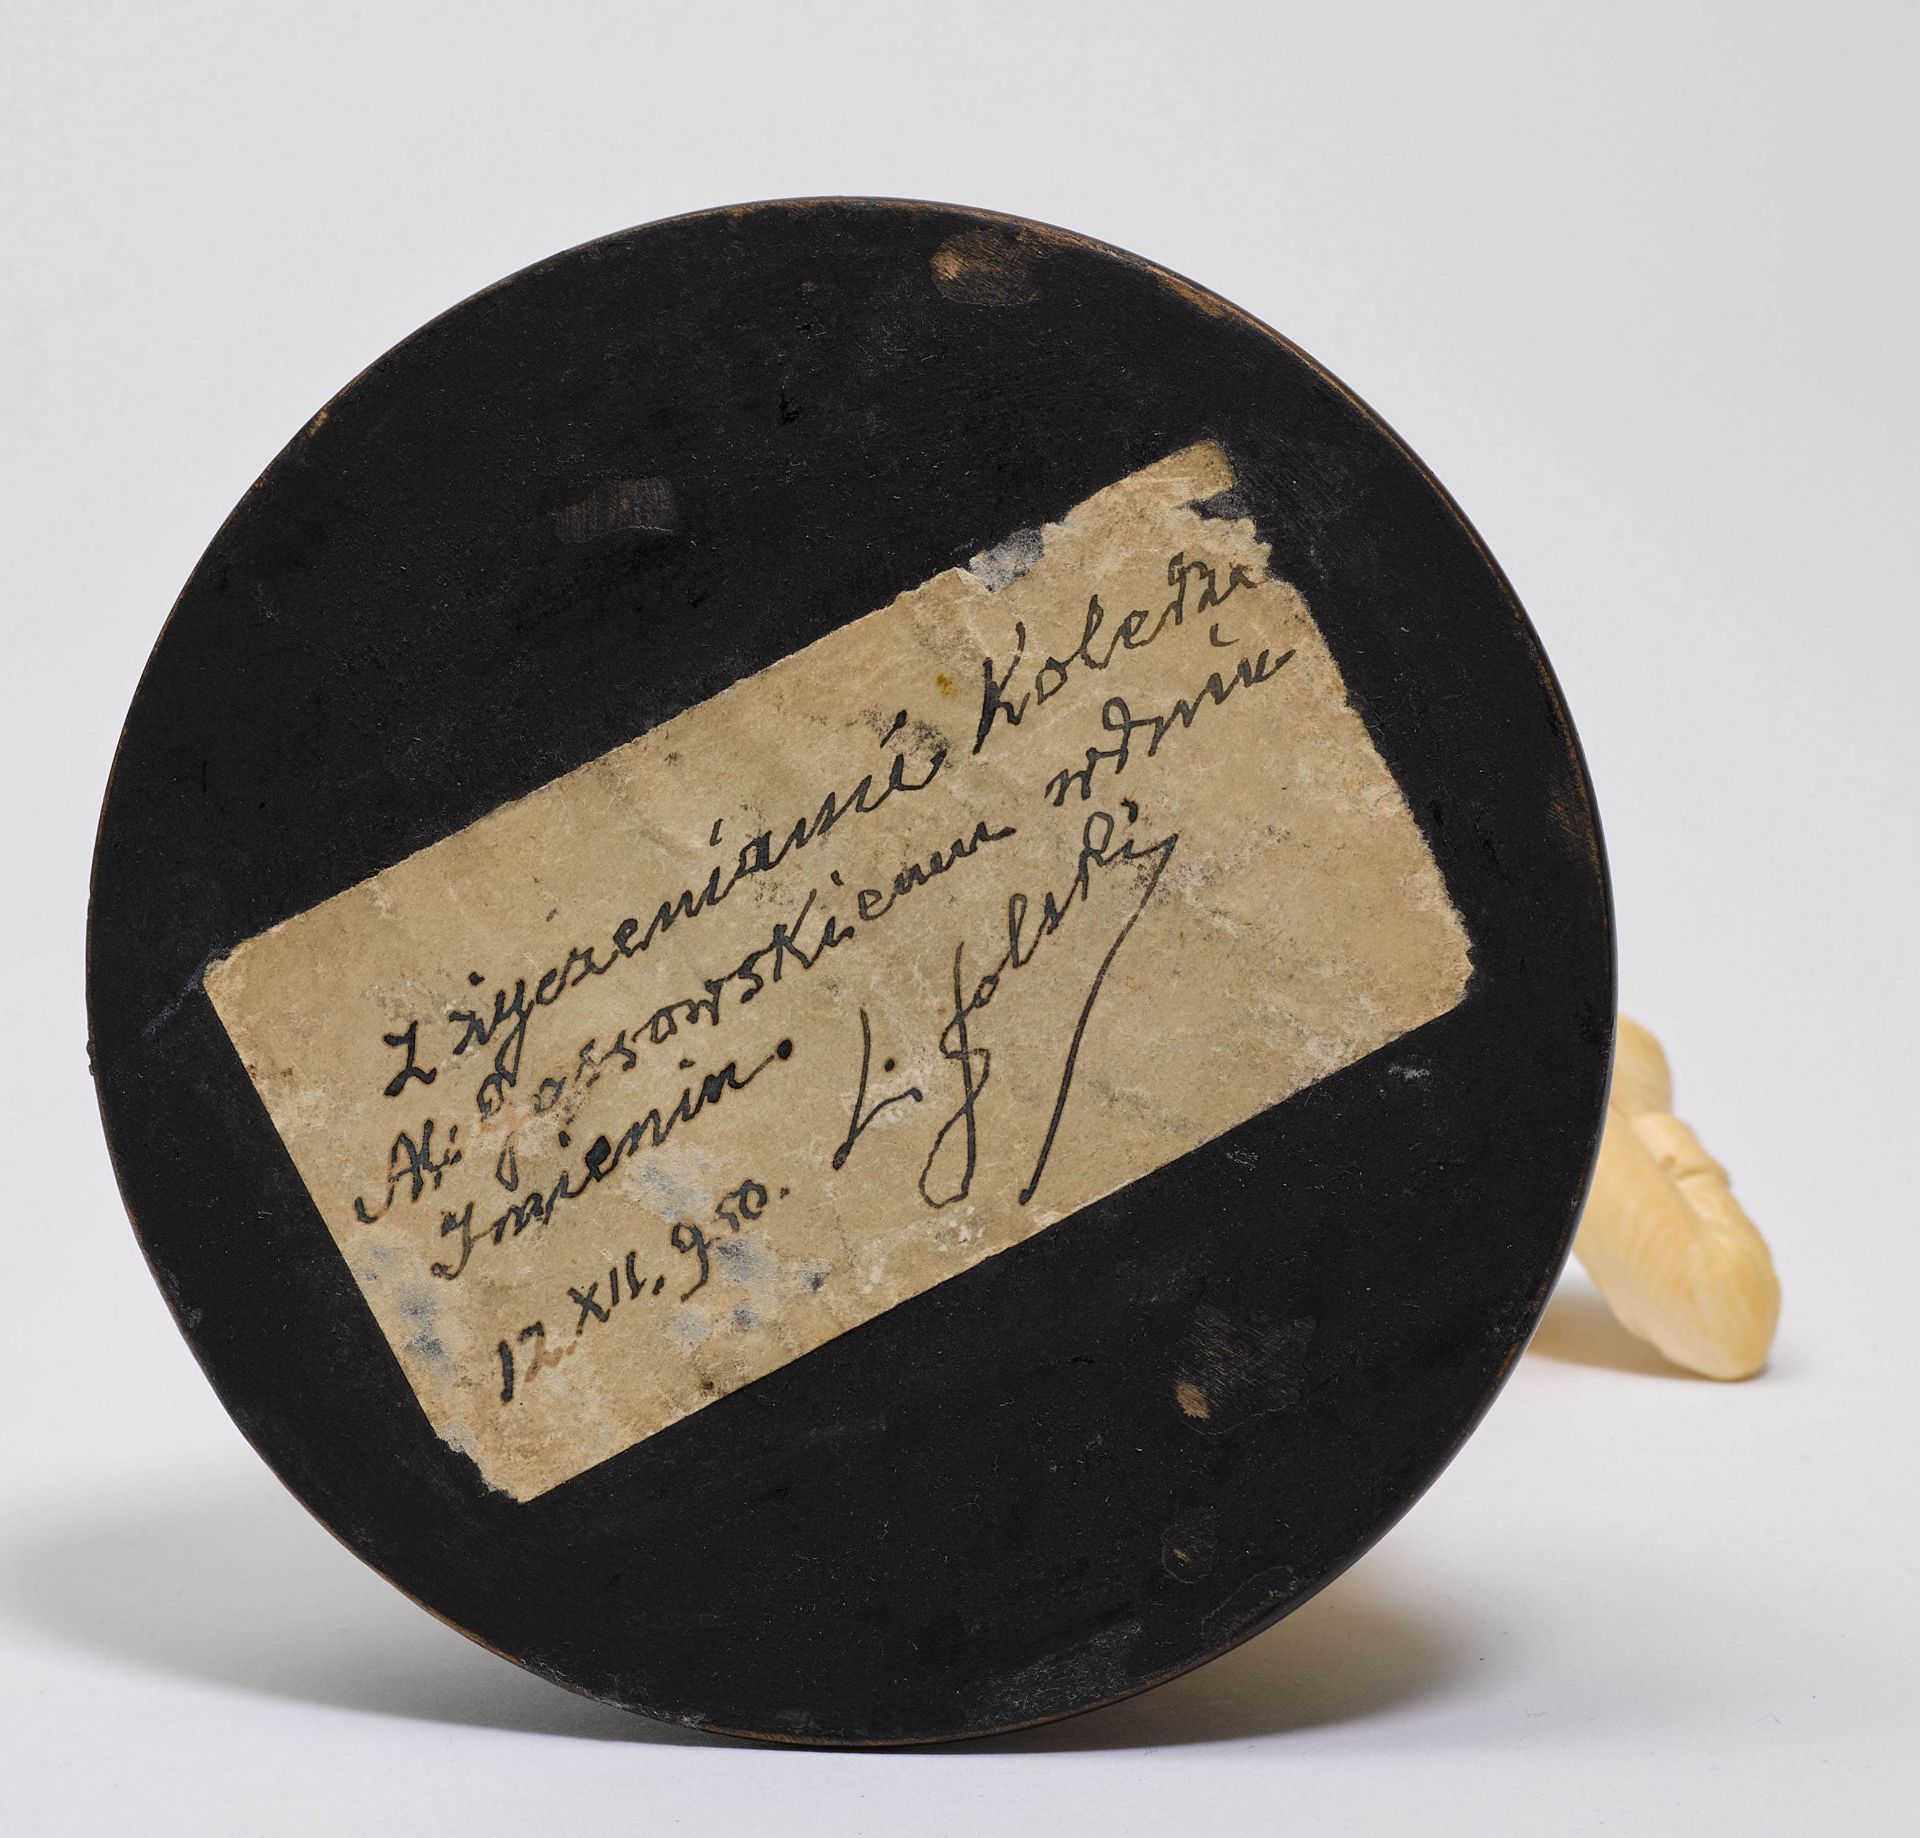 Z życzeniami Koledze
Al: Gassowskiemu w dniu
Imienin.
12. XII. 950. L. Golski